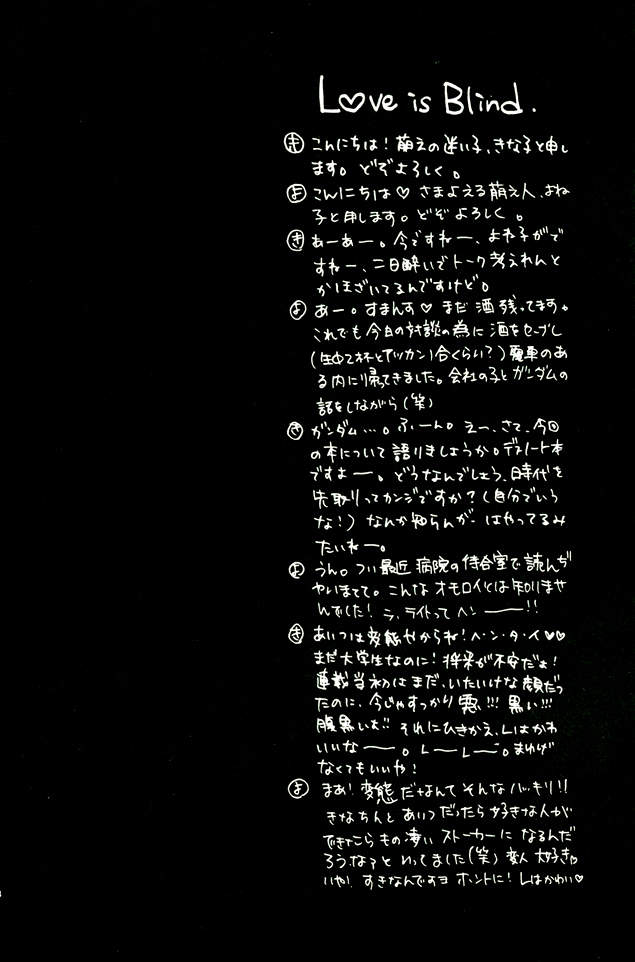 Love is Blind.
㋖ こんにちは！萌えの迷い子、きな子と申し
ます。どぞよろしく。
よ こんにちは♡ さまよえる萌え人、よね
子と申します。どぞよろしく。
㋖ あーあー。今ですねー、よね子がで
すねー、二日酔いでトーク考えれんと
かほざいてるんですけど。
よ あー。すまんす♡ まだ酒残ってます。
これでも今日の対談の為に酒をセーブし
(生中2杯とアツカン1合くらい？)電車のあ
る内に帰ってきました。会社の子とガンダムの
話をしながら(笑)
き ガンダム…。ふーん。えー、さて、今回
の本について語りましょうか。デスノート本
ですよー。どうなんでしょう、時代を
先取りってカンジですか？(自分でいう
な！) なんか知らんが、はやってるみ
たいねー。
よ うん。つい最近病院の待合室で読んぢ
ゃいまして。こんなオモロイとは知りませ
んでした！ラ、ライトってヘンーー!!
き あいつは変態やからね！ヘ・ン・タ・イ♡♡
まだ大学生なのに！将来が不安だよ！
連載当初はまだ、いたいけな顔だっ
たのに、今じゃすっかり悪!!! 黒い!!!
腹黒いよ!! それにひきかえ、Lはかわ
いいなーー。L ーL ー。まゆげ
なくてもいいや！
よ まあ！変態だなんてそんなバッキリ!!
きなちんとあいつだったら好きな人が
できたらもの凄いストーカーになるんだ
ろうなっといってました(笑) 変人 大好き♡
いや！すきなんですヨ ホントに！Lはかわい♡